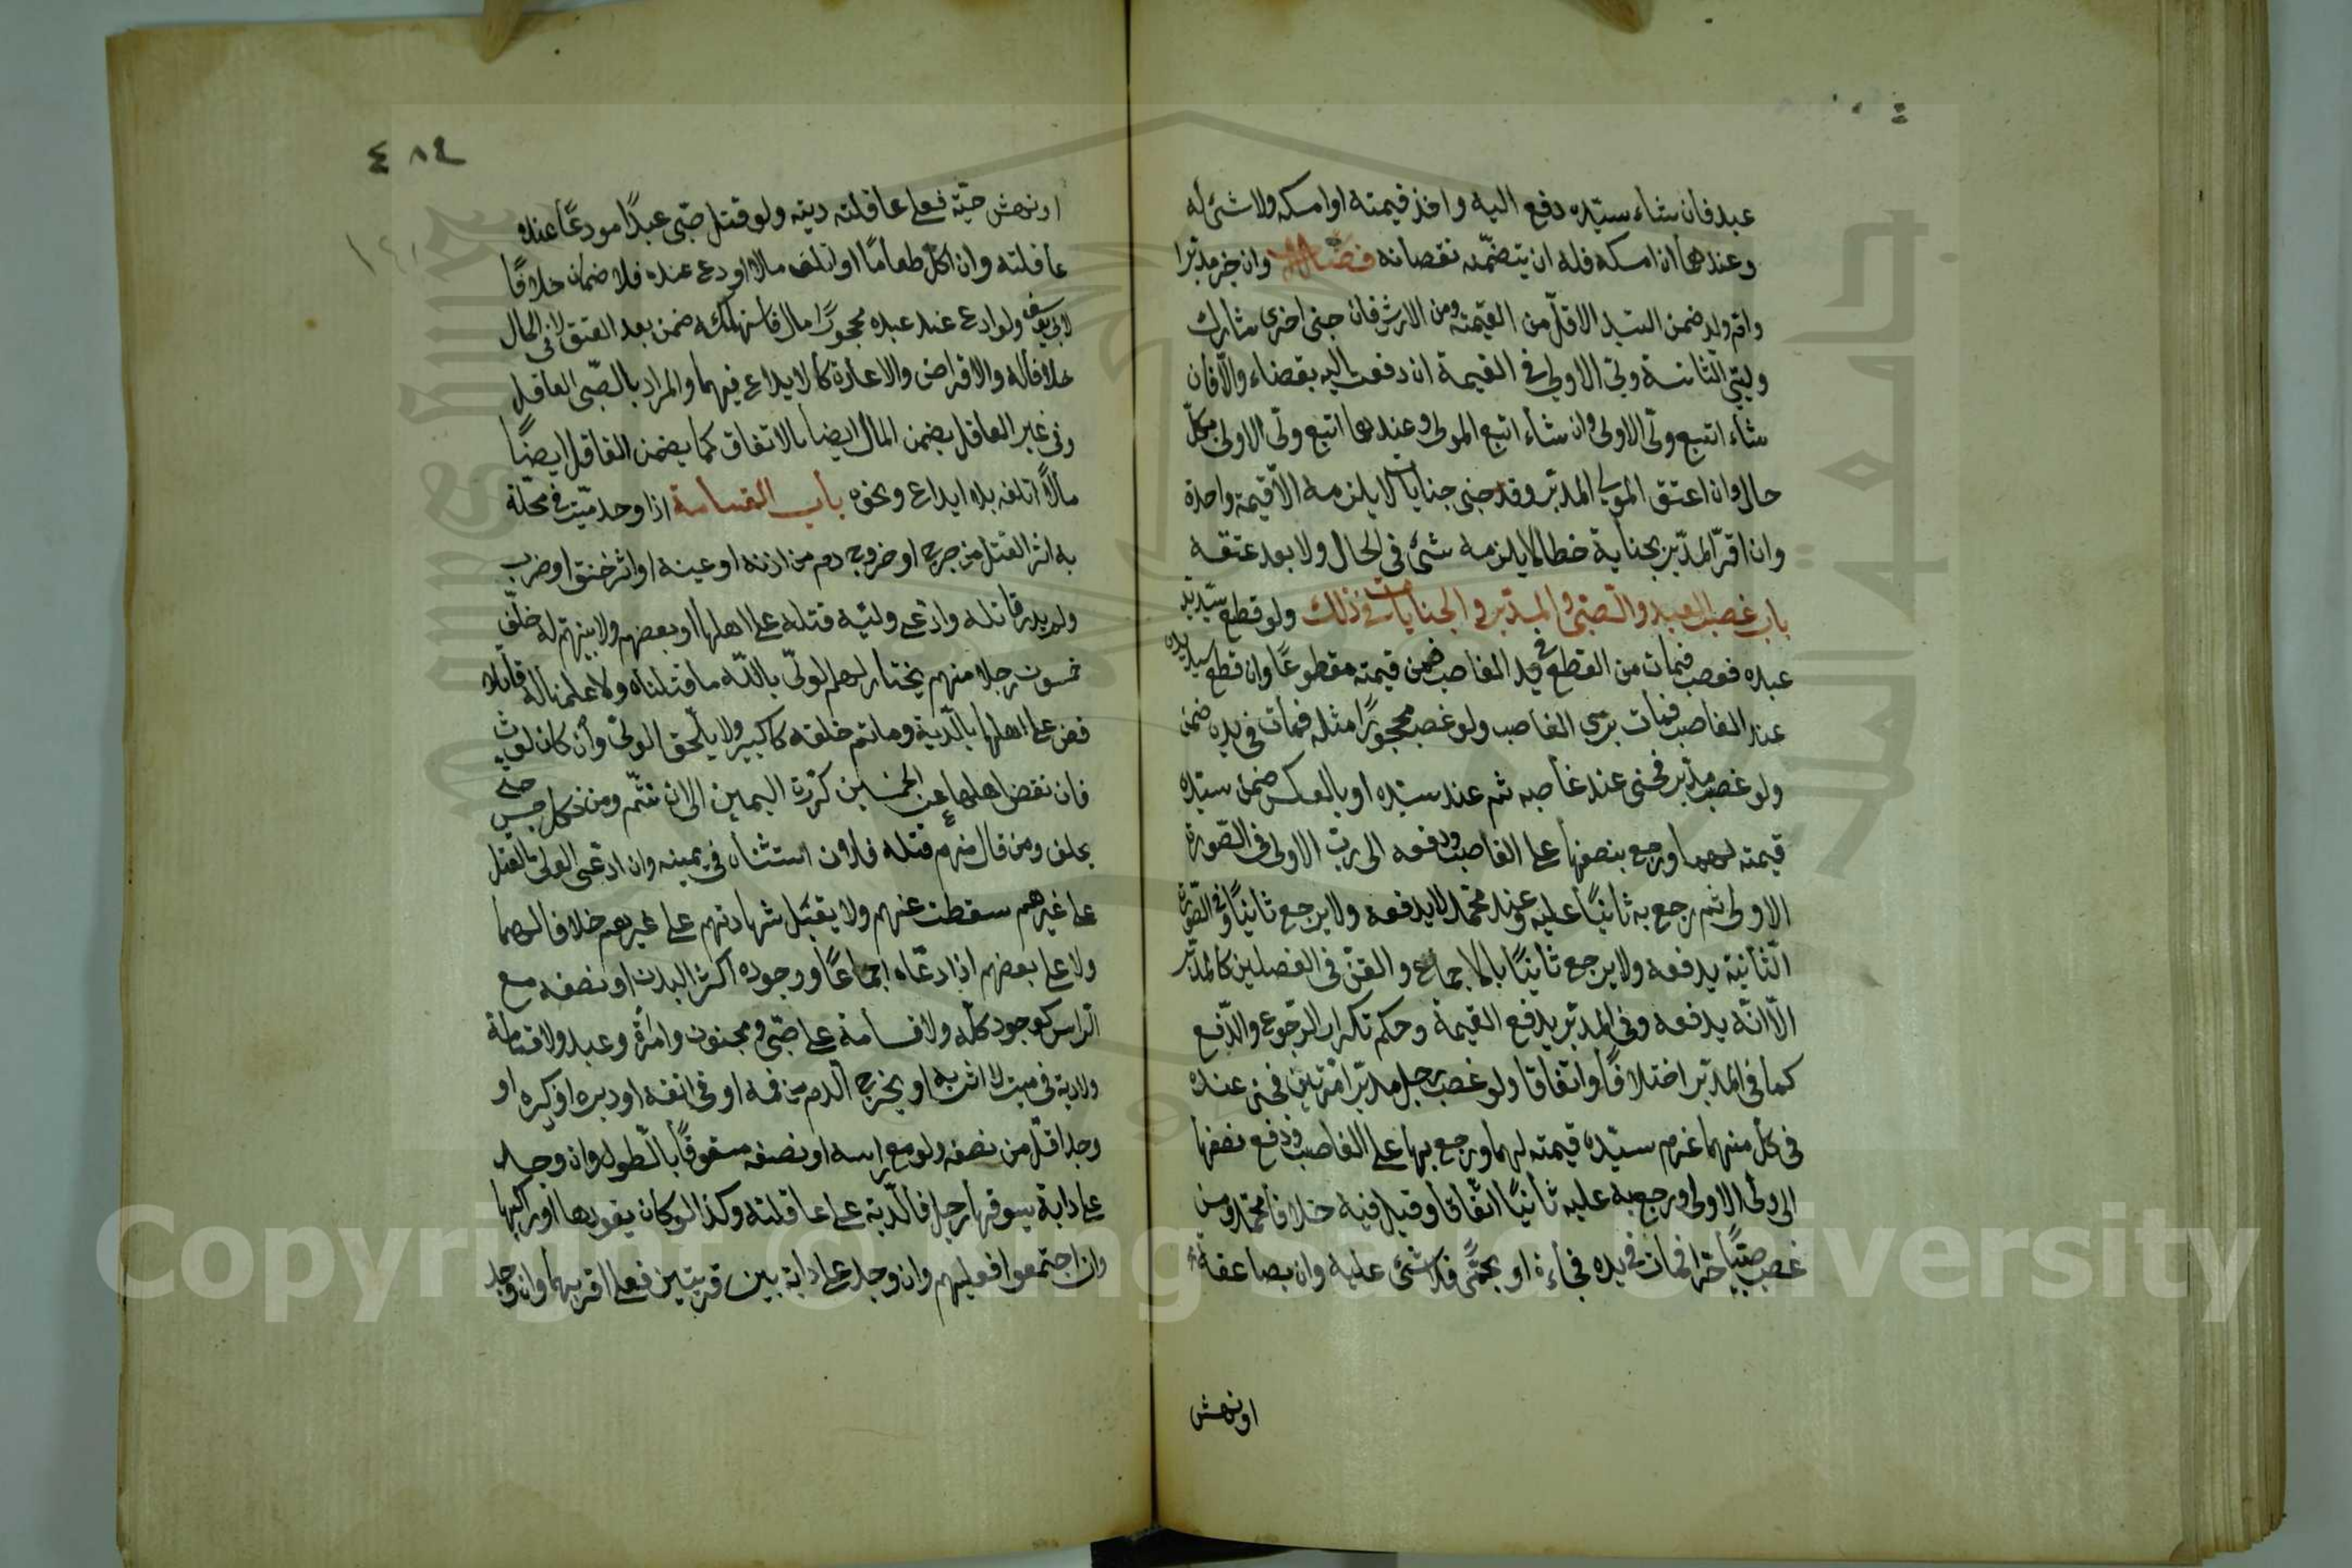 عبد فان شاء سيّده دفع اليه واخذ قيمته او امسكه ولا شئ له
وعندهما ان امسكه فله ان يتضمّنه نقصانه فصل وان جنى مدبّر
او امّ ولد ضمن السيّد الاقلّ من القيمة ومن الارش فان جنى اخرى شارك
وليّ الثانية وليّ الاولى في القيمة ان دفعت اليه بقضاء والّا فان
شاء اتبع وليّ الاولى وان شاء اتبع المولى وعندهما اتبع وليّ الاولى بكلّ
حال وان اعتق المولى المدبّر وقد جنى جنايات لا يلزمه الّا قيمة واحدة
وان اقرّ المدبّر بجناية خطأ لا يلزمه شئ في الحال ولا بعد عتقه
باب غصب العبد والصّبى والمدبّر والجنايات في ذلك ولو قطع سيّد يد
عبده فغصب فمات من القطع في يد الغاصب ضمن قيمته مقطوعًا وان قطع سيّد يده
عند الغاصب فمات برئ الغاصب ولو غصب محجورًا مثله فمات في يده ضمن
ولو غصب مدبّر فجنى عند غاصبه ثم عند سيّده او بالعكس ضمن سيّده
قيمته لهما ورجع بنصفها على الغاصب ودفعه الى ربّ الاولى في الصّورة
الاولى ثم رجع به ثانيًا عليه وعند محمّد لا يدفعه ولا يرجع ثانيًا وفي الصّورة
الثّانية يدفعه ولا يرجع ثانيًا بالاجماع والقنّ في الفصلين كالمدبّر
الّا انّه يدفعه وفي المدبّر يدفع القيمة وحكم تكرار الرّجوع والدّفع
كما في المدبّر اختلافًا واتفاقا ولو غصب رجل مدبّرًا مرّتين فجنى عنده
في كلّ منهما غرم سيّده قيمته لهما ورجع بها على الغاصب ودفع نصفها
الى ولى الاولى ورجع به عليه ثانيًا اتّفاقا وقيل فيه خلاف محمّد ومن
غصب صبيّا حرّا فمات في يده فجأة او بحمّى فلا شئ عليه وان بصاعقة
او نهش
٤٨٤
او نهش حيّة فعلى عاقلته ديته ولو قتل صبّى عبدًا مودعًا عنده
عاقلته وان اكل طعامًا او اتلف مالا اودع عنده فلا ضمان خلافًا
لابى يوسف ولو اودع عند عبده محجور مال فاستهلكه ضمن بعد العتق لا في الحال
خلافا له والاقراض والاعارة كالايداع فيهما والمراد بالصّبى العاقل
وفي غير العاقل يضمن المال ايضا بالاتفاق كما يضمن العاقل ايضًا
مالًا اتلفه بلا ايداع ونحوه باب القسامة اذا وجد ميّت في محلّة
به اثر القتل من جرح او خروج دم من اذنه او عينه او اثر خنق او ضرب
ولم يدر قاتله وادّعى وليّه قتله على اهلها او بعضهم ولا بيّنة له حلّف
خمسون رجلا منهم يختارهم الولىّ بالله ما قتلناه ولا علمنا له قاتلا
ثم قضى على اهلها بالدّية وما تم خلقه كالكبير ولا يلحق الولىّ وان كان لوث
فان نقص اهلها عن الخمسين كرّرت اليمين الى ان تتمّ ومن نكل حبس حتّى
يحلف ومن قال منهم قتله فلان استثناه في يمينه وان ادّعى الولى القتل
على غيرهم سقطت عنهم ولا يقبل شهادتهم على غيرهم خلافا لهما
ولا على بعضهم اذا ادعّاه اجماعًا ووجود اكثر البدن او نصفه مع
الرّاس كوجود كلّه ولا قسامة على صبّى ومجنون وامرأة وعبد ولا قسامة
ولا دية في ميت لا اثر به او يخرج الدّم من فمه او في انفه او دبره او ذكره او
وجد اقلّ من نصفه ولو مع راسه او نصفه مشقوقًا بالطّول وان وجد
على دابة يسوقها رجل فالدّية على عاقلته وكذا لو كان يقودها او راكبها
وان اجتمعوا فعليهم وان وجد على دابة بين قريتين فعلى اقربهما وان وجد